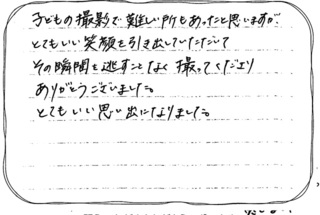 子どもの撮影で難しい所もあったと思いますが、
とてもいい笑顔を引き出していただいて
その瞬間を逃すことなく撮ってくださり
ありがとうございました。
とてもいい思い出になりました。